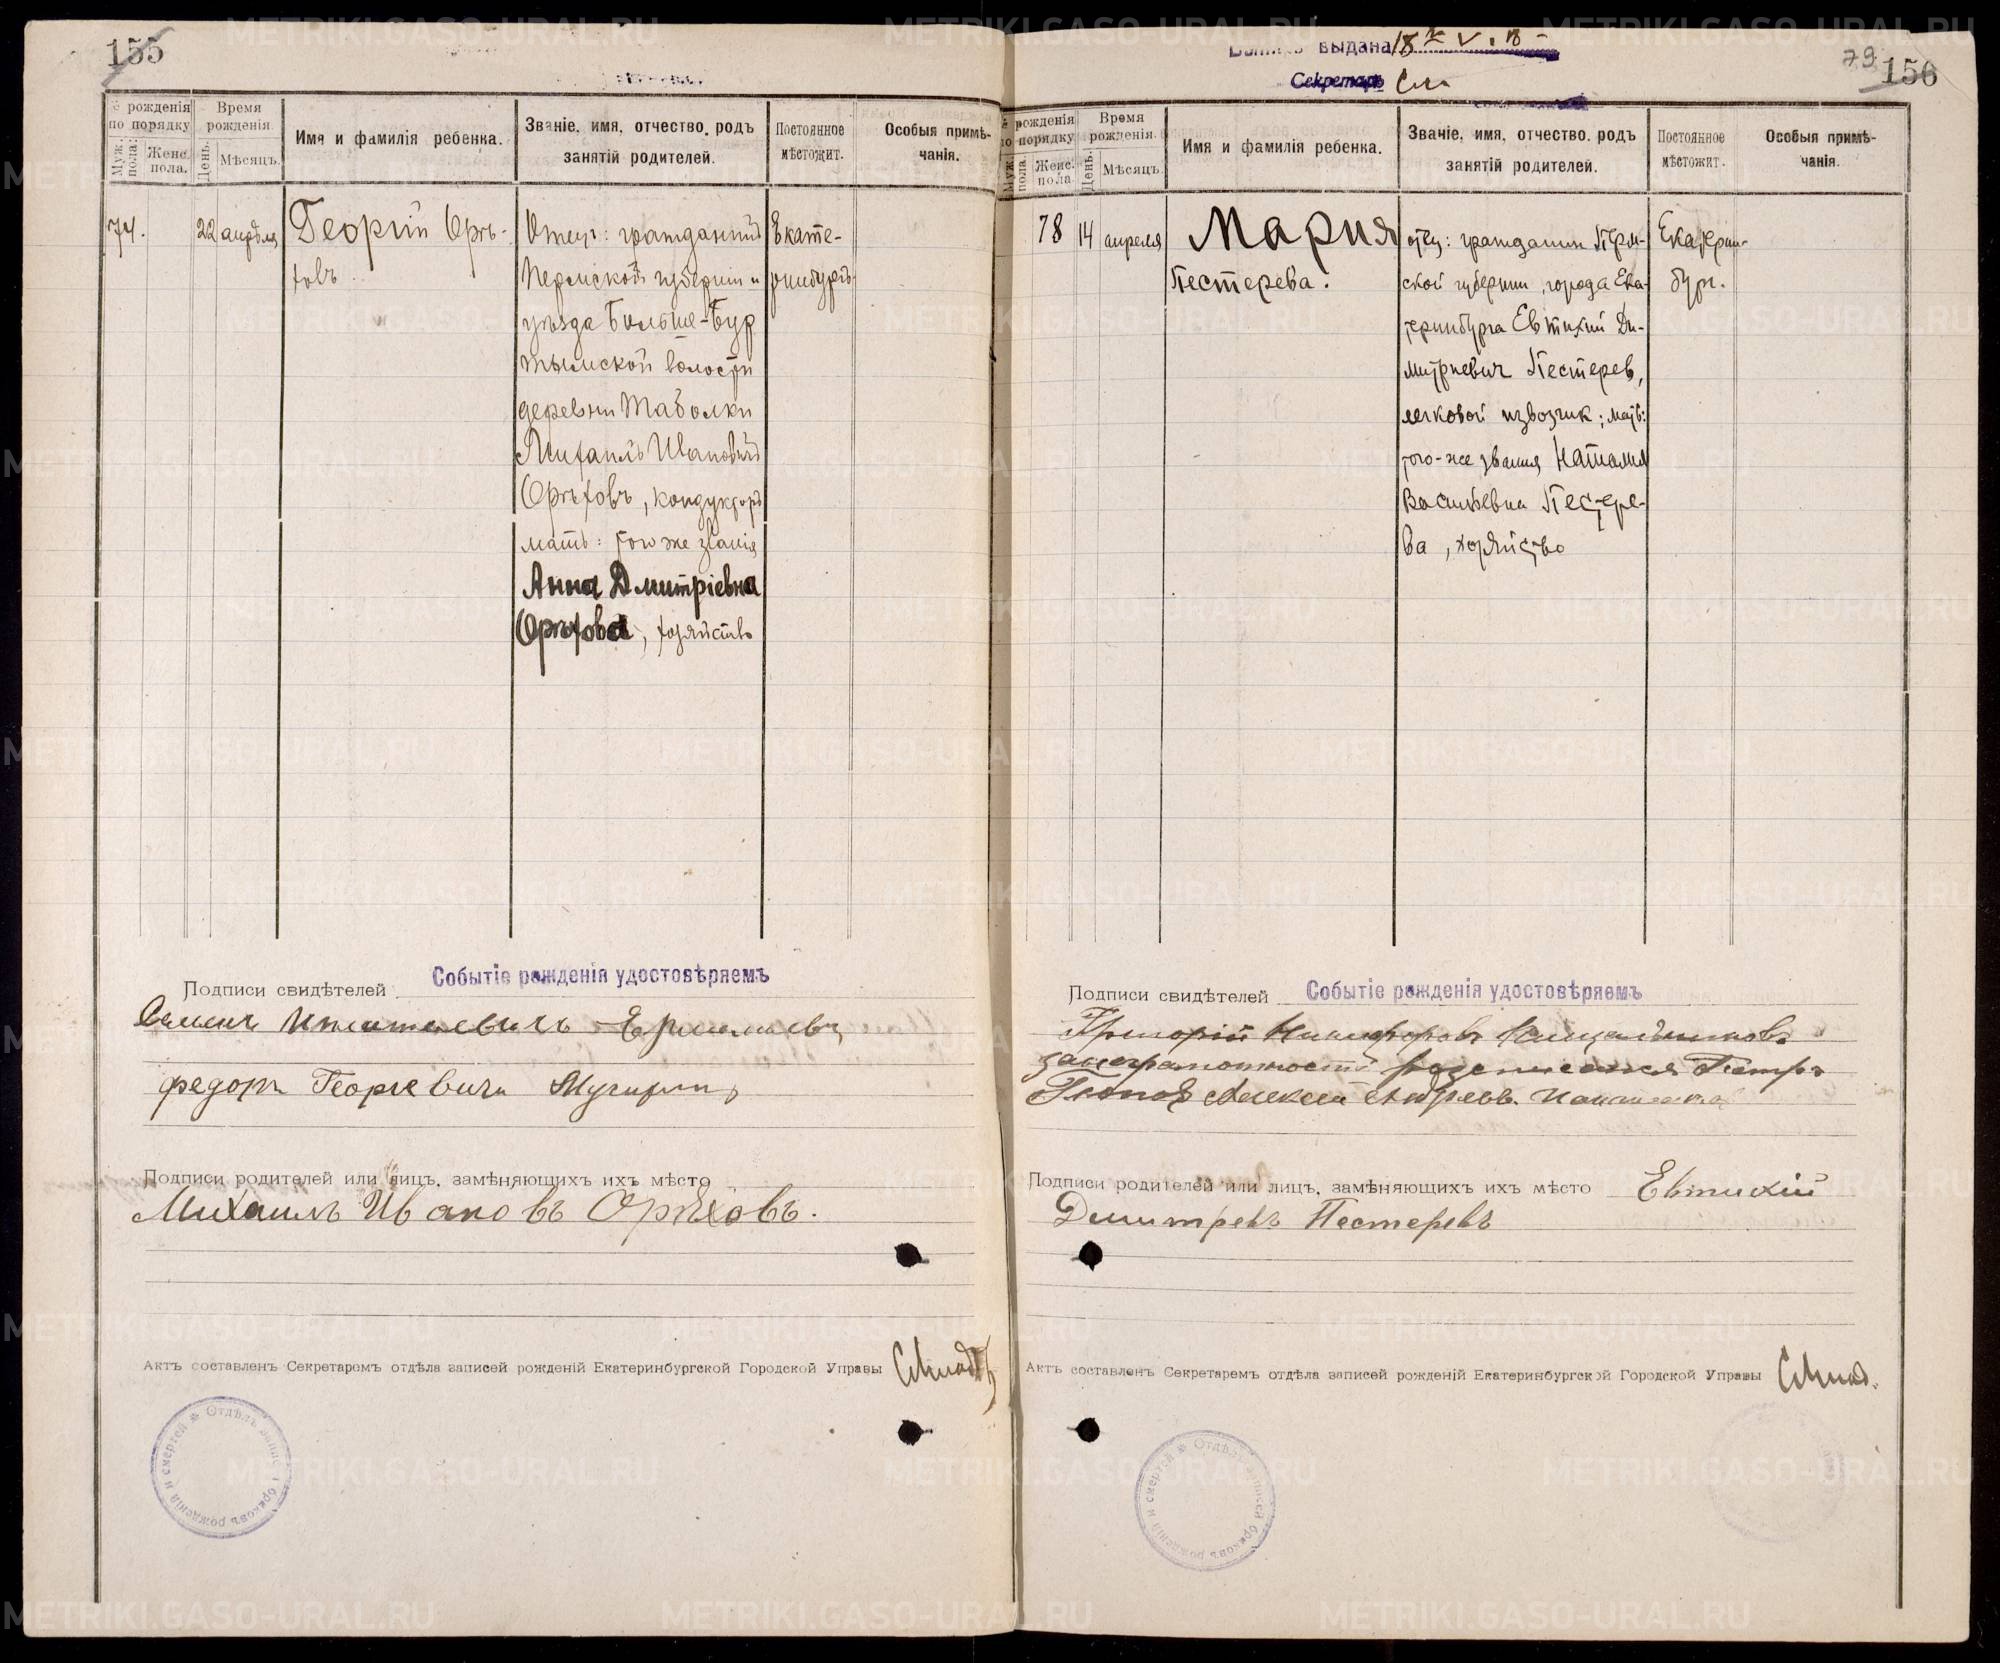 155
№ рожденія по порядку
Муж. пола:
Женс. пола.
Время рожденія.
День.
Мѣсяцъ.
Имя и фамилія ребенка.
Званіе, имя, отчество, родъ
занятій родителей.
Постоянное
мѣстожит.
Особыя примѣ-
чанія.
74.
22
апрѣля
Георгій Орѣ-
ховъ
Отецъ: гражданинъ
Пермской губерніи и
уѣзда Больше-Бур
тымской волости
деревни Таволки
Михаилъ Ивановичъ
Орѣховъ, кондукторъ
мать: того же званія
Анна Дмитріевна
Орѣхова, хозяйство
Екате-
ринбургъ
Подписи свидѣтелей
Событіе рожденія удостовѣряемъ
Семенъ Игнатьевичъ
Федоръ Георгевичъ
Подписи родителей или лицъ, замѣняющихъ ихъ мѣсто
Михаилъ Ивановъ Орѣховъ.
Актъ составленъ Секретаремъ отдѣла записей рожденій Екатеринбургской Городской Управы
Отдѣлъ записей браковъ рожденія и смертей
выдана 18 V. 18
Секретарь
79
156
рожденія по порядку
Муж. пола
Женс. пола
Время рожденія.
День.
Мѣсяцъ.
Имя и фамилія ребенка.
Званіе, имя, отчество, родъ
занятій родителей.
Постоянное
мѣстожит.
Особыя примѣ-
чанія.
78
14
апреля
Мария
Пестерева.
отец: гражданин Перм-
ской губернии, города Ека-
теринбурга Евтихий Ди-
митриевич Пестерев,
легковой извозчик; мать:
того-же звания Наталия
Васильевна Пестере-
ва, хозяйство
Екатерин-
бург.
Подписи свидѣтелей
Событіе рожденія удостовѣряемъ
Григорій Никифоровъ
Петръ
Алексей Андреевъ
Подписи родителей или лицъ, замѣняющихъ ихъ мѣсто
Евтихій
Дмитревъ Пестеревъ
Актъ составленъ Секретаремъ отдѣла записей рожденій Екатеринбургской Городской Управы
Отдѣлъ записей браковъ рожденія и смертей
METRIKI.GASO-URAL.RU